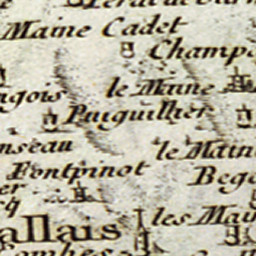 Maine Cadet
Champ
le Maine
gois
Puiguillier
nseau
le Main
Fontpinot
Beg
er
allais
les Mai